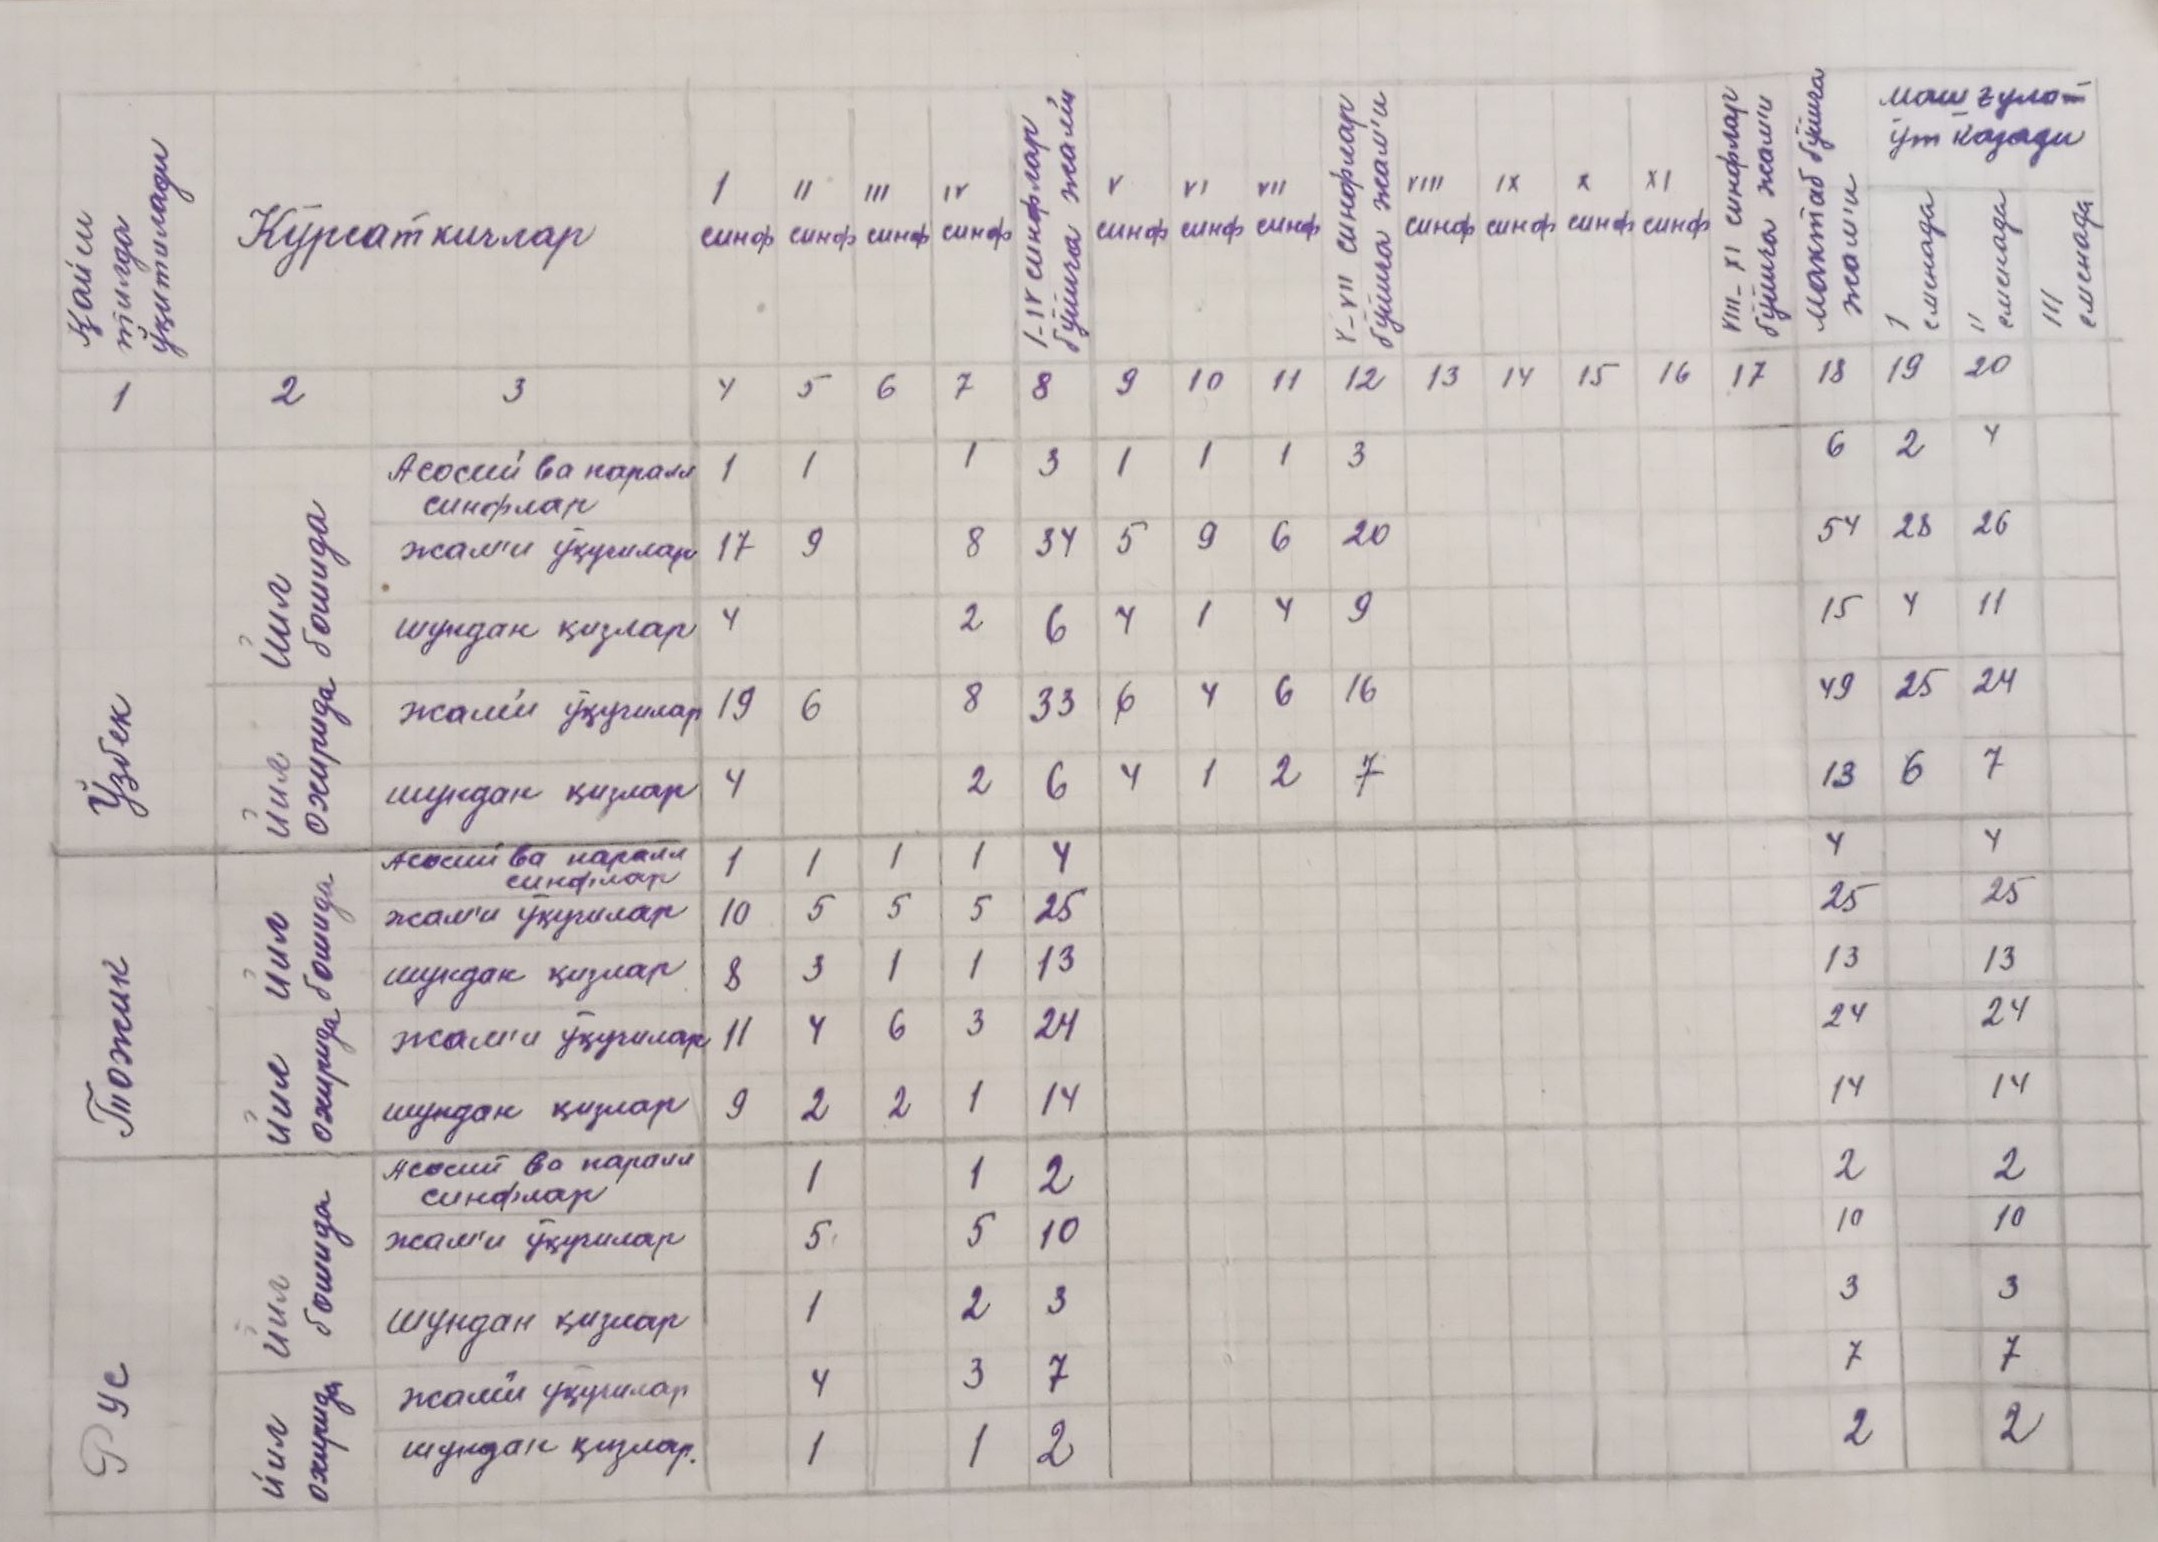 Қайси тилда ўқитилади
Кўрсаткичлар
I синф
II синф
III синф
IV синф
I-IV синфлар бўйича жами
V синф
VI синф
VII синф
V-VII синфлар бўйича жам'и
VIII синф
IX синф
X синф
XI синф
VIII-XI синфлар бўйича жам'и
мактаб бўйича жам'и
машғулот ўтказади
I сменада
II сменада
III сменада
1 2 3 4 5 6 7 8 9 10 11 12 13 14 15 16 17 18 19 20
Ўзбек
Йил бошида
Асосий ва паралл синфлар 1 1 1 3 1 1 1 3 6 2 4
жам'и ўқучилар 17 9 8 34 5 9 6 20 54 28 26
шундан қизлар 4 2 6 4 1 4 9 15 4 11
Йил охирида
жам'и ўқучилар 19 6 8 33 6 4 6 16 49 25 24
шундан қизлар 4 2 6 4 1 2 7 13 6 7
Тожик
Йил бошида
Асосий ва паралл синфлар 1 1 1 1 4 4 4
жам'и ўқучилар 10 5 5 5 25 25 25
шундан қизлар 8 3 1 1 13 13 13
Йил охирида
жам'и ўқучилар 11 4 6 3 24 24 24
шундан қизлар 9 2 2 1 14 14 14
Рус
Йил бошида
Асосий ва паралл синфлар 1 1 2 2 2
жам'и ўқучилар 5 5 10 10 10
шундан қизлар 1 2 3 3 3
Йил охирида
жам'и ўқучилар 4 3 7 7 7
шундан қизлар. 1 1 2 2 2